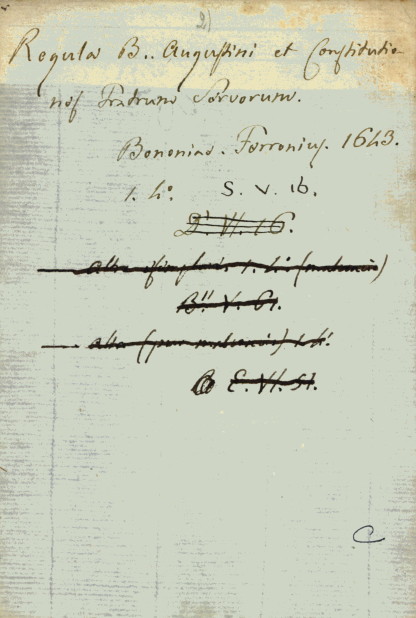 2)
Regula B. Augustini et Constitutio-
nes Fratrum Servorum.
Bononiae. Ferronius. 1643.
1. 4º. S. V. 16.
D' VI. 16.
B'' V. 61.
E. VI. 51.
C